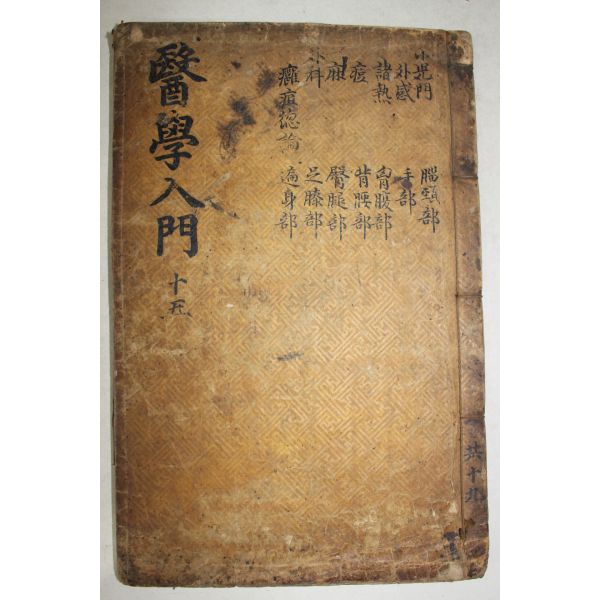 醫學入門
十五
小兒門
外感
諸熱
痘
麻
外科
癰疽總論
腦頸部
手部
胸腹部
背腰部
臀腿部
足膝部
遍身部
共十九